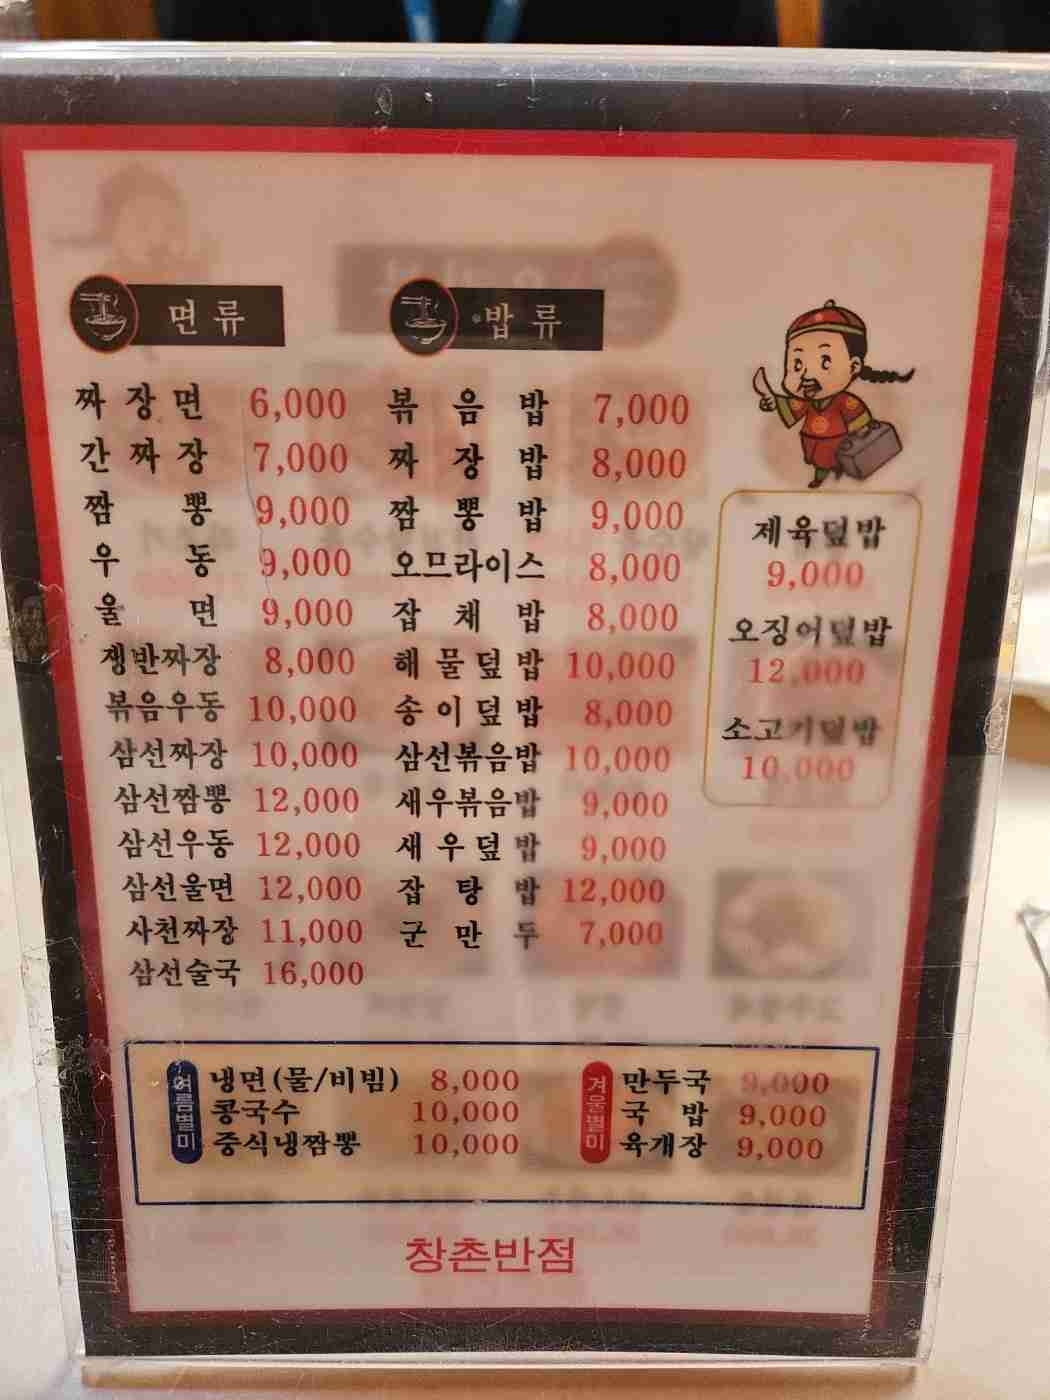 면류
짜장면 6,000
간짜장 7,000
짬뽕 9,000
우동 9,000
울면 9,000
쟁반짜장 8,000
볶음우동 10,000
삼선짜장 10,000
삼선짬뽕 12,000
삼선우동 12,000
삼선울면 12,000
사천짜장 11,000
삼선술국 16,000
밥류
볶음밥 7,000
짜장밥 8,000
짬뽕밥 9,000
오므라이스 8,000
잡채밥 8,000
해물덮밥 10,000
송이덮밥 8,000
삼선볶음밥 10,000
새우볶음밥 9,000
새우덮밥 9,000
잡탕밥 12,000
군만두 7,000
제육덮밥
9,000
오징어덮밥
12,000
소고기덮밥
10,000
여름별미
냉면(물/비빔) 8,000
콩국수 10,000
중식냉짬뽕 10,000
겨울별미
만두국 9,000
국밥 9,000
육개장 9,000
창촌반점